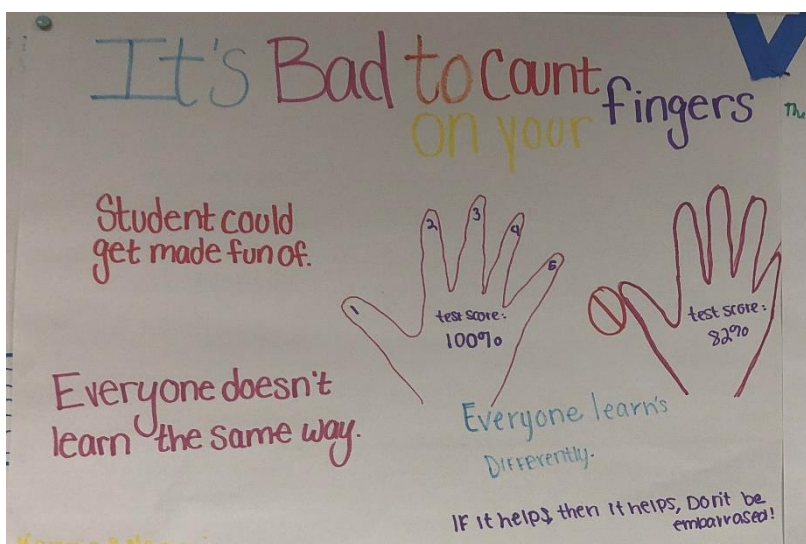 It's Bad to Count fingers
on your
Student could
get made fun of.
1
2
3
4
5
test score:
100%
test score:
82%
Everyone doesn't
learn the same way.
Everyone learn's
Differently.
IF It helps then It helps, Don't be
embarrased!